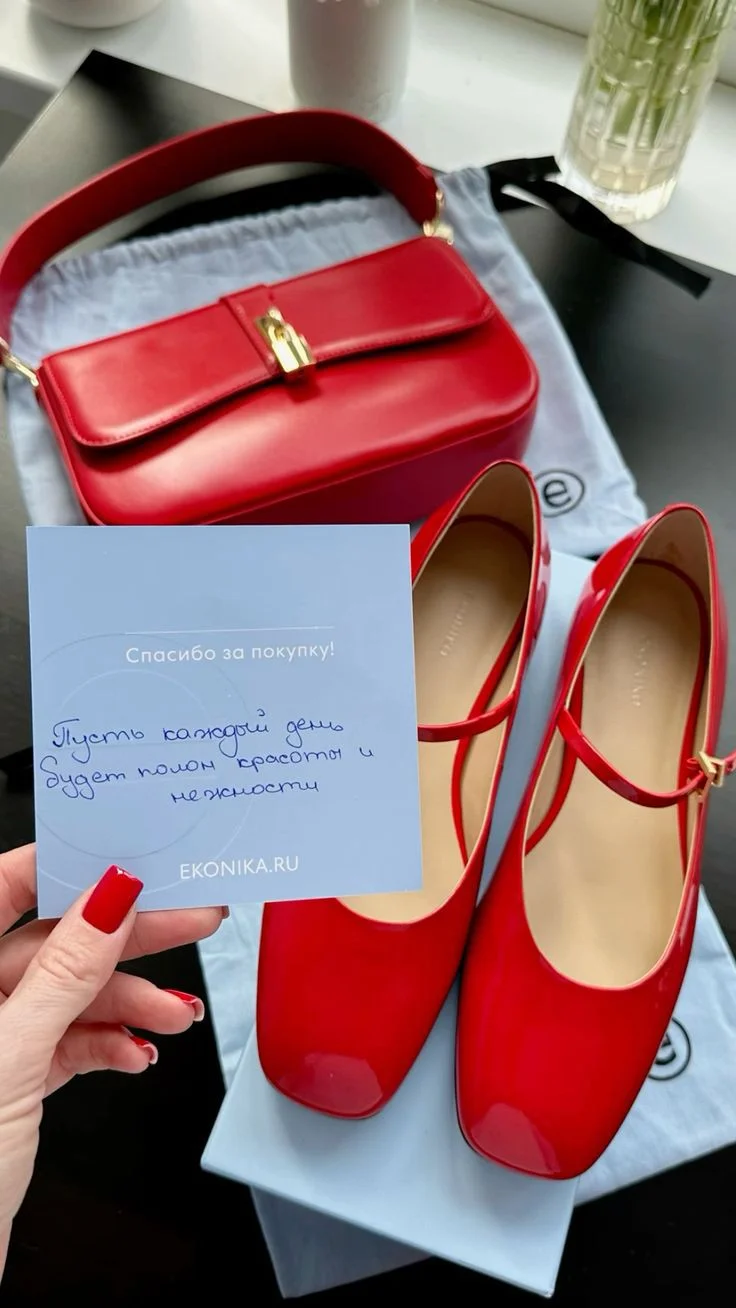 e
Спасибо за покупку!
Пусть каждый день
будет полон красоты и
нежности
EKONIKA.RU
EKONIKA
e